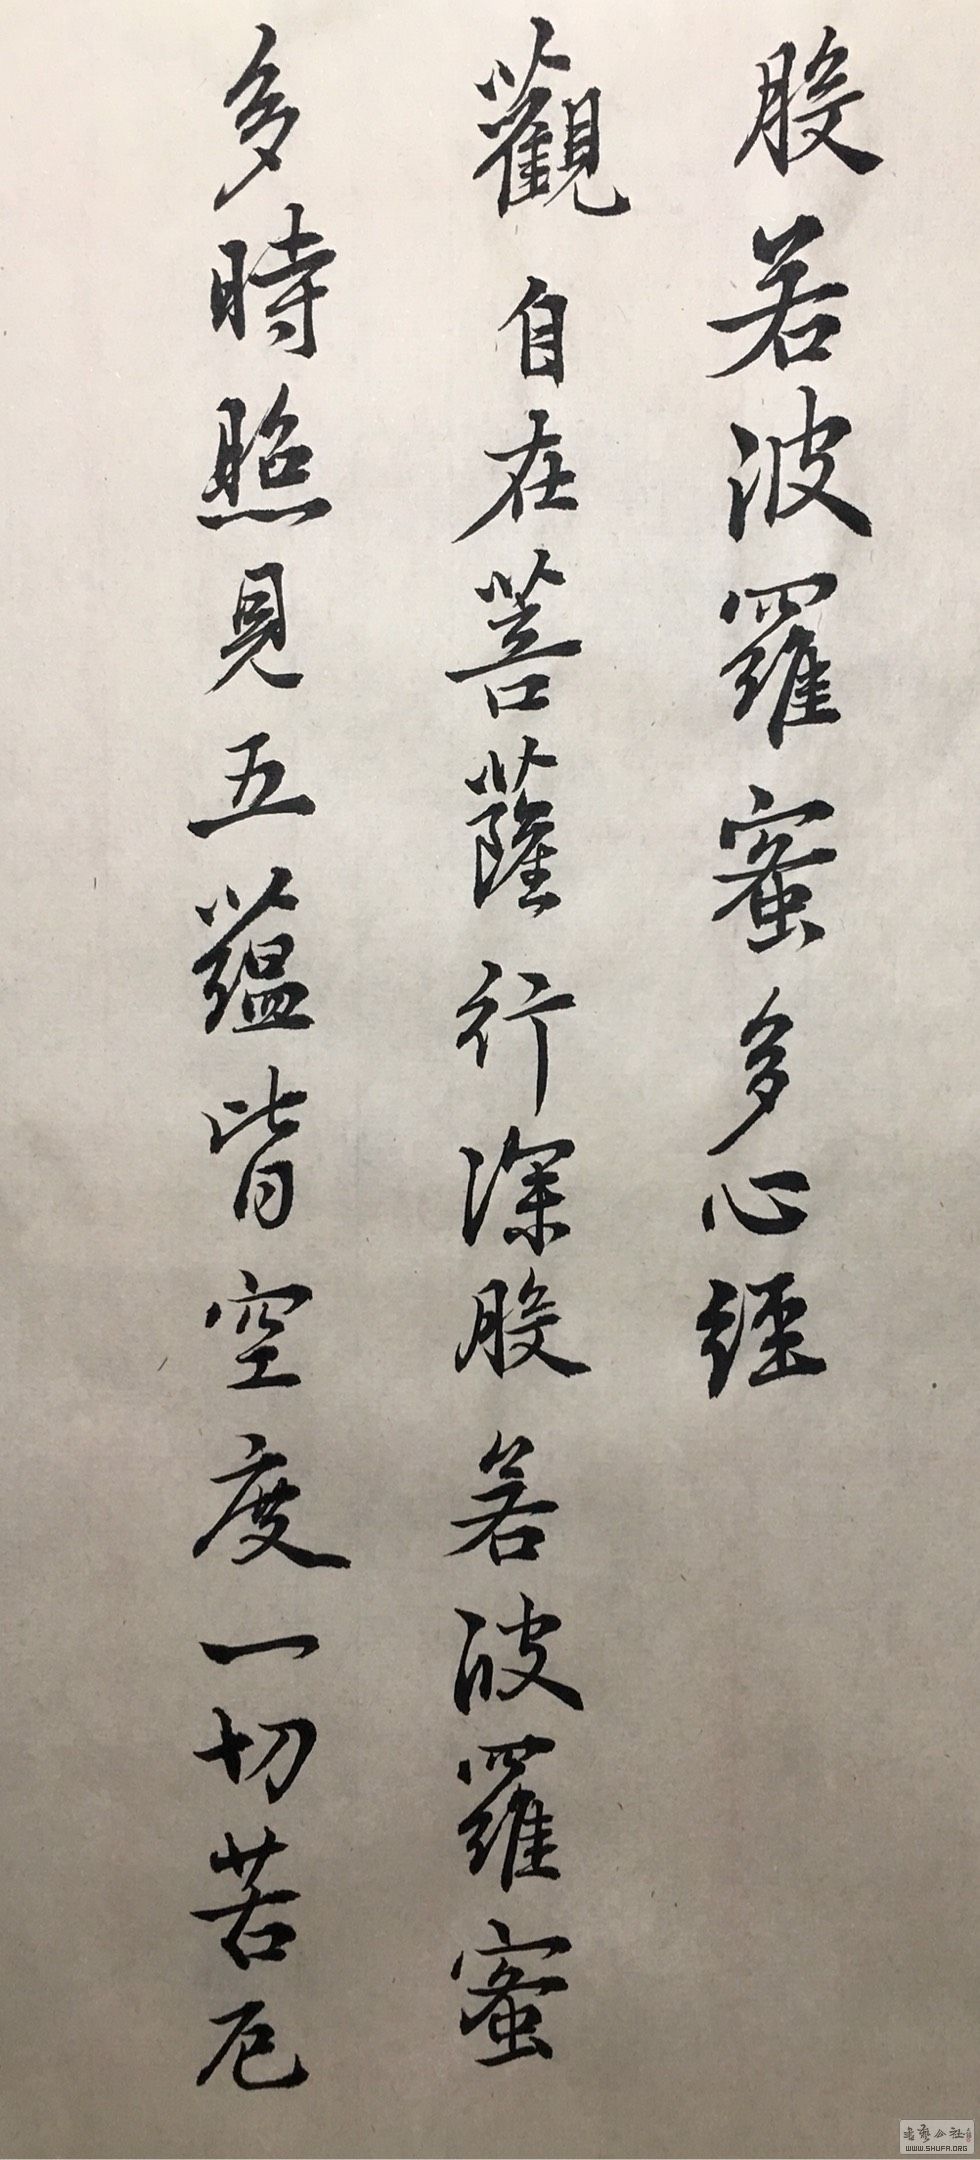 般若波羅蜜多心經
觀自在菩薩行深般若波羅蜜
多時照見五蘊皆空度一切苦厄
WWW.SHUFA.ORG